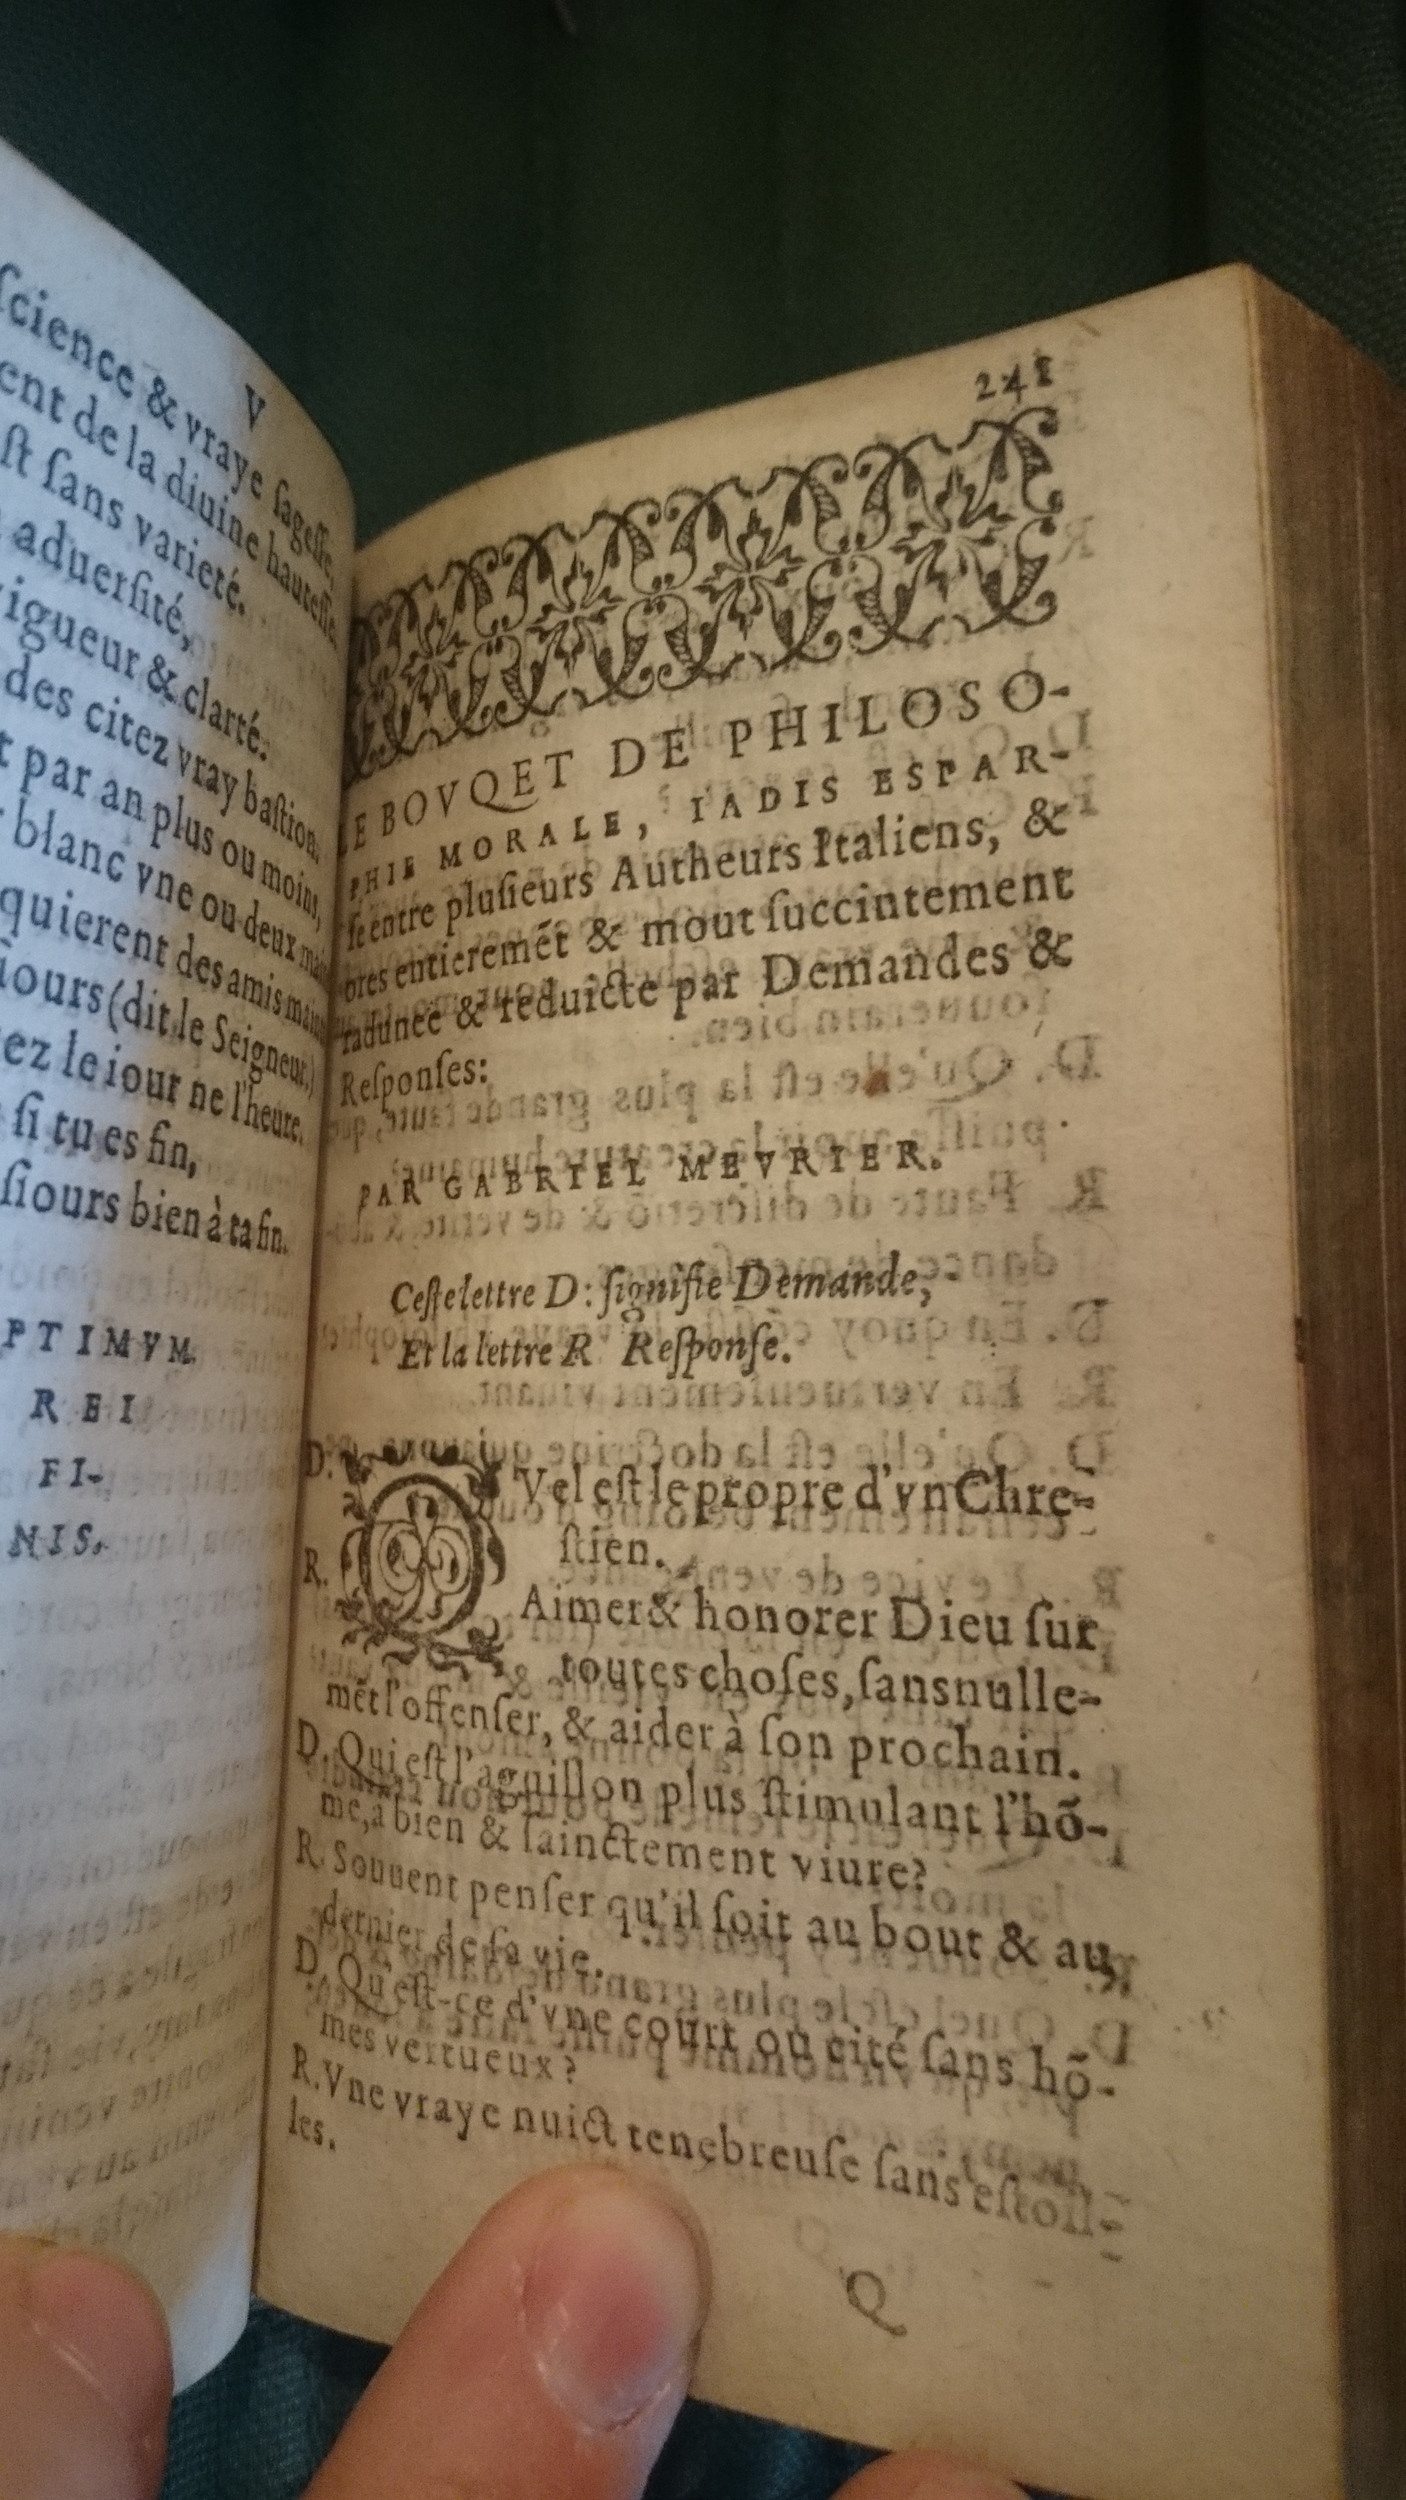 V
ſcience & vraye ſageſſe,
ent de la diuine hauteſſe.
ſt ſans varieté.
aduerſité,
igueur & clarté.
des citez vray baſtion.
t par an plus ou moins,
blanc vne ou deux
quierent des amis
iours (dit le Seigneur,)
ez le iour ne l'heure.
ſi tu es fin,
ſiours bien à ta fin.
PTIMVM.
REI
FI-
NIS.
241
LE BOVQET DE PHILOSO-
PHIE MORALE, IADIS ESPAR-
ſe entre pluſieurs Autheurs Italiens, &
ores entieremēt & mout ſuccintement
radunee & reduicte par Demandes &
Reſponſes:
PAR GABRIEL MEVRIER.
Ceſte lettre D: ſignifie Demande,
Et la lettre R Reſponſe.
D. QVel eſt le propre d'vn Chre-
ſtien.
R. Aimer & honorer Dieu ſur
toutes choſes, ſans nulle-
mēt l'offenſer, & aider à ſon prochain.
D. Qui eſt l'aguillon plus ſtimulant l'hō-
me, à bien & ſainctement viure?
R. Souuent penſer qu'il ſoit au bout & au
dernier de ſa vie.
D. Qu'eſt-ce d'vne court ou cité ſans hō-
mes vertueux?
R. Vne vraye nuict tenebreuſe ſans eſtoil-
les.
Q